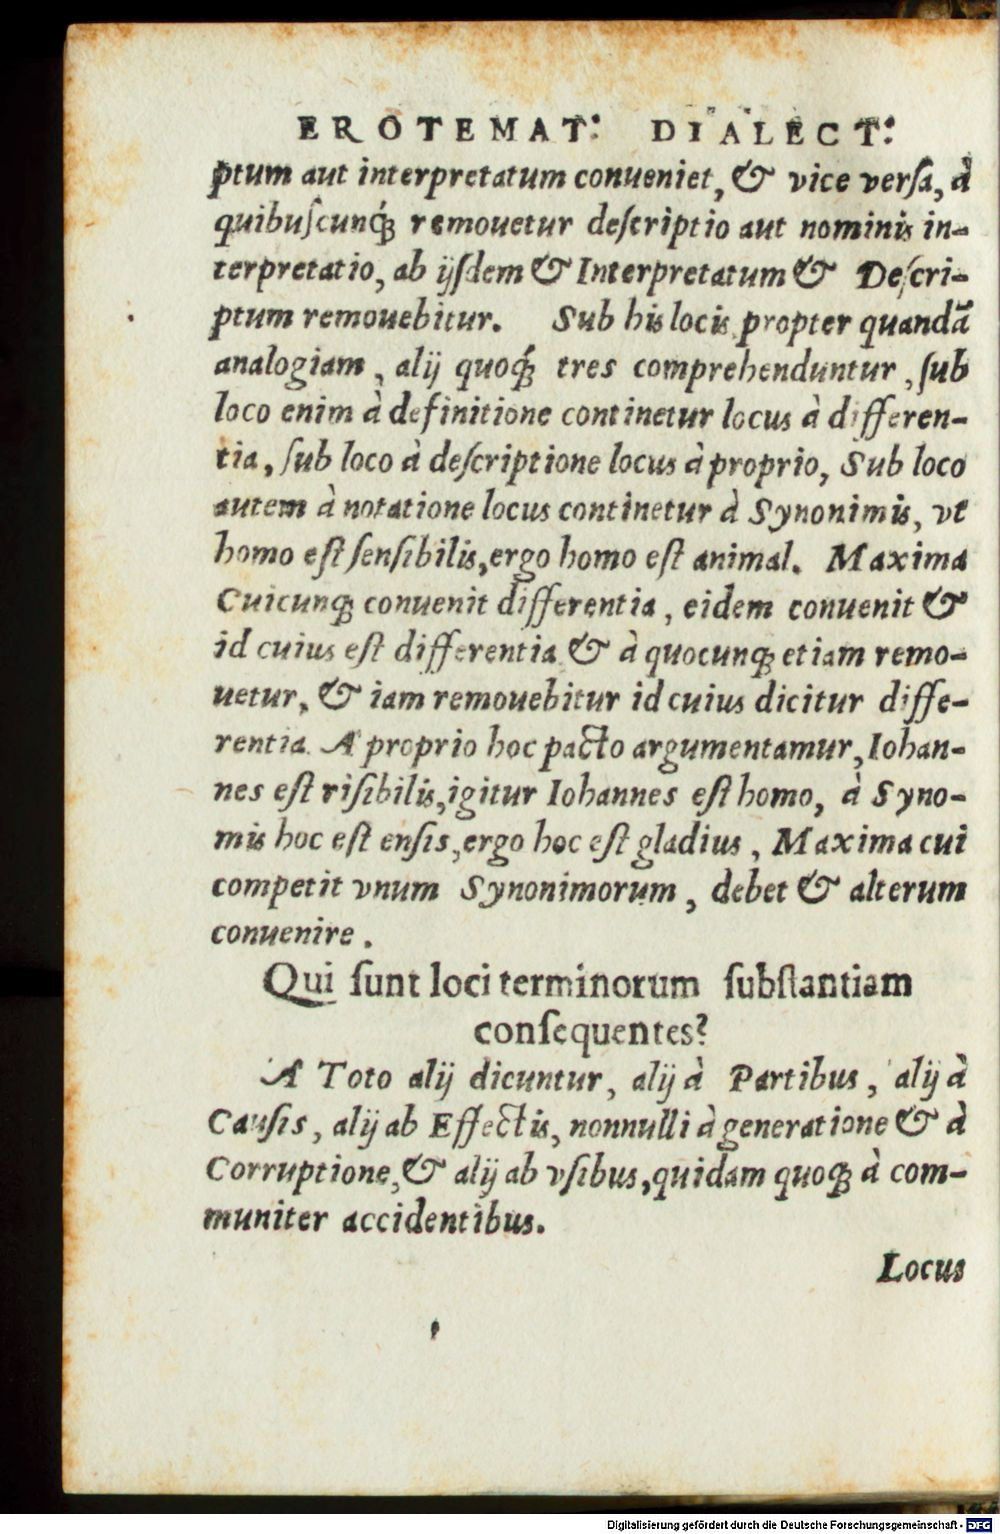 EROTEMAT: DIALECT:
ptum aut interpretatum conueniet, & vice verſa, à
quibuſcunq́; remouetur deſcriptio aut nominis in-
terpretatio, ab ijſdem & Interpretatum & Deſcri-
ptum remouebitur. Sub his locis propter quandã
analogiam, alij quoq́; tres comprehenduntur, ſub
loco enim à definitione continetur locus à differen-
tia, ſub loco à deſcriptione locus à proprio, Sub loco
autem à notatione locus continetur à Synonimis, vt
homo eſt ſenſibilis, ergo homo eſt animal. Maxima
Cuicunq; conuenit differentia, eidem conuenit &
id cuius eſt differentia & à quocunq; etiam remo-
uetur, & iam remouebitur id cuius dicitur diffe-
rentia. A proprio hoc pacto argumentamur, Iohan-
nes eſt riſibilis, igitur Iohannes eſt homo, à Syno-
mis hoc eſt enſis, ergo hoc eſt gladius, Maxima cui
competit vnum Synonimorum, debet & alterum
conuenire.
Qui ſunt loci terminorum ſubſtantiam
conſequentes?
A Toto alij dicuntur, alij à Partibus, alij à
Cauſis, alij ab Effectis, nonnulli à generatione & à
Corruptione, & alij ab vſibus, quidam quoq; à com-
muniter accidentibus.
Locus
Digitalisierung gefördert durch die Deutsche Forschungsgemeinschaft - DFG